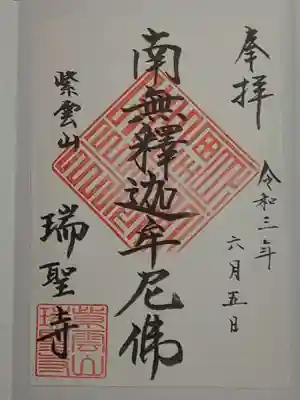 奉拝
令和三年
六月五日
南無釋迦牟尼佛
紫雲山
瑞聖寺